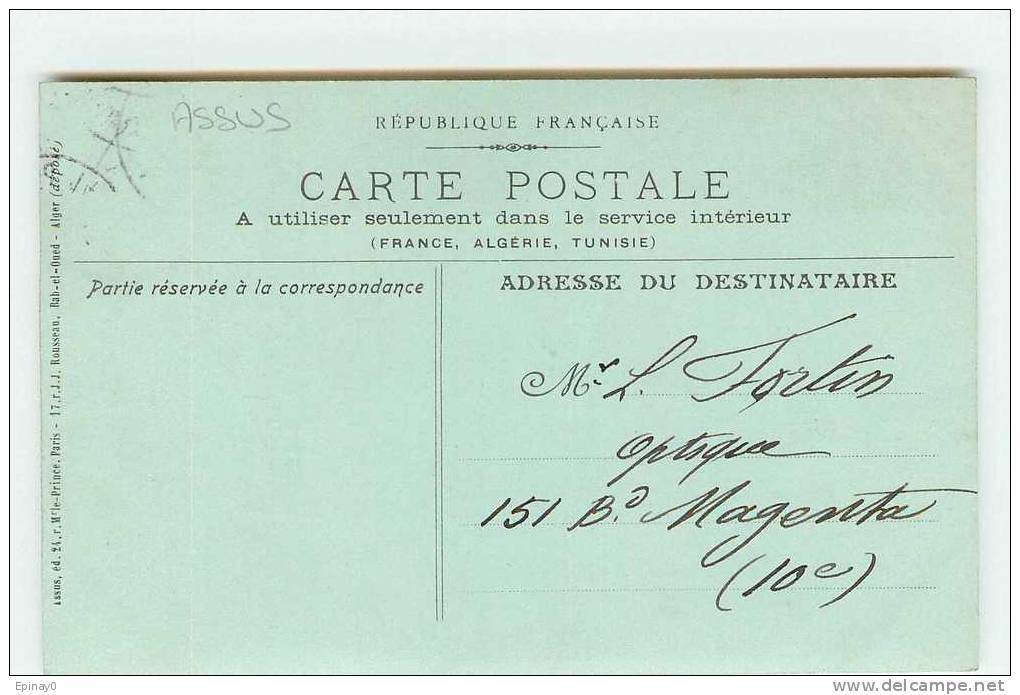 ASSUS
RÉPUBLIQUE FRANÇAISE
CARTE POSTALE
A utiliser seulement dans le service intérieur
(FRANCE, ALGÉRIE, TUNISIE)
Partie réservée à la correspondance
ADRESSE DU DESTINATAIRE
Mr. L. Fortin
Optique
151 Bd. Magenta
(10e)
Assus, éd. 24, r. Mr le-Prince, Paris - 17, r. J.J. Rousseau, Bab-el-Oued - Alger (déposé)
Epinay0
www.delcampe.net